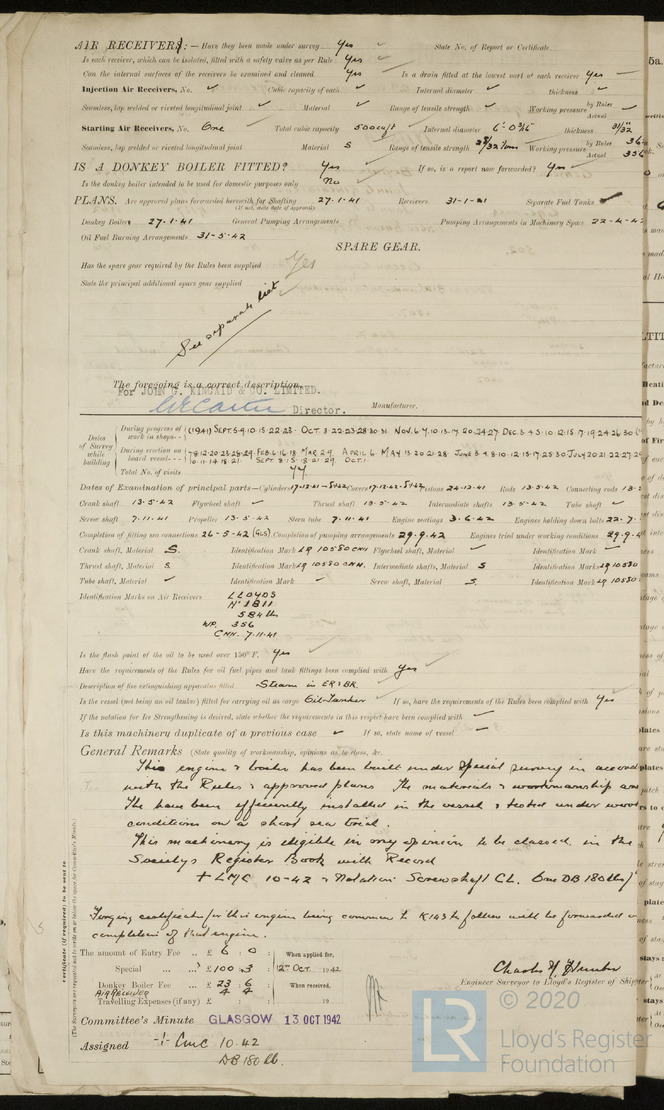 AIR RECEIVERS:— Have they been made under survey Yes ✓ State No. of Report or Certificate
Is each receiver, which can be isolated, fitted with a safety valve as per Rule Yes ✓
Can the internal surfaces of the receivers be examined and cleaned Yes Is a drain fitted at the lowest part of each receiver Yes —
Injection Air Receivers, No. ✓ Cubic capacity of each ✓ Internal diameter ✓ thickness ✓
Seamless, lap welded or riveted longitudinal joint ✓ Material ✓ Range of tensile strength ✓ Working pressure by Rules Actual
Starting Air Receivers, No. One Total cubic capacity 500 cu ft Internal diameter 6' 0 3/16" thickness 31/32"
Seamless, lap welded or riveted longitudinal joint Material S Range of tensile strength 28/32 tons Working pressure by Rules Actual 356
IS A DONKEY BOILER FITTED? Yes ✓ If so, is a report now forwarded? Yes ✓
Is the donkey boiler intended to be used for domestic purposes only No
PLANS. Are approved plans forwarded herewith for Shafting 27.1.41 Receivers 31-1-41 Separate Fuel Tanks ✓
(If not, state date of approval)
Donkey Boilers 27.1.41 General Pumping Arrangements Pumping Arrangements in Machinery Space 22-4-4
Oil Fuel Burning Arrangements 31-5-42
SPARE GEAR.
Has the spare gear required by the Rules been supplied Yes
State the principal additional spare gear supplied
See separate list
The foregoing is a correct description,
For JOHN G. KINCAID & CO. LIMITED.
Director. Manufacturer.
Dates of Survey while building
During progress of work in shops - - (1941) SEPT. 5.9.10.15.22.23. OCT. 3.22.23.28.30.31. NOV. 6.7.10.13.17.20.24.27 DEC. 3.4.5.10.12.15.17.19.24.26.30
During erection on board vessel - - - 7.8.12.20.23.28.29. FEB. 6.16.18 MAR 29. APRIL 6. MAY 13.20.21.28. JUNE 3.4.8.10.12.15.17.25.30. JULY 20.21.22.27.2
10.11.14.18.21. SEPT. 8.15.18.21.29. OCT. 1.
Total No. of visits 74
Dates of Examination of principal parts—Cylinders 17.12.41-5.1.42 Covers 17.12.42-5.1.42 Pistons 24.12.41 Rods 13.5.42 Connecting rods 13.
Crank shaft 13.5.42 Flywheel shaft ✓ Thrust shaft 13.5.42 Intermediate shafts 13.5.42 Tube shaft ✓
Screw shaft 7.11.41 Propeller 13.5.42 Stern tube 7.11.41 Engine seatings 3.6.42 Engines holding down bolts 22.7.
Completion of fitting sea connections 26-5-42 (GLS) Completion of pumping arrangements 29.9.42 Engines tried under working conditions 29.9.4
Crank shaft, Material S. Identification Mark LR 10580 CNH Flywheel shaft, Material ✓ Identification Mark ✓
Thrust shaft, Material S Identification Mark LR 10580 CNH. Intermediate shafts, Material S Identification Marks LR 10580
Tube shaft, Material ✓ Identification Mark ✓ Screw shaft, Material S. Identification Mark LR 10580
Identification Marks on Air Receivers LLOYDS
No 1811
584 lb
WP. 356
CNH. 7.11.41
Is the flash point of the oil to be used over 150° F. Yes ✓
Have the requirements of the Rules for oil fuel pipes and tank fittings been complied with Yes ✓
Description of fire extinguishing apparatus fitted Steam in ER & BR.
Is the vessel (not being an oil tanker) fitted for carrying oil as cargo Oil-Tanker If so, have the requirements of the Rules been complied with Yes ✓
If the notation for Ice Strengthening is desired, state whether the requirements in this respect have been complied with ✓
Is this machinery duplicate of a previous case ✓ If so, state name of vessel ✓
General Remarks (State quality of workmanship, opinions as to class, &c.
This engine & boiler has been built under special survey in accord
with the Rules & approved plans The materials & workmanship are
The have been efficiently installed in the vessel & tested under work
conditions on a short sea trial.
This machinery is eligible in my opinion to be classed in the
Society's Register Book with Record
+ LMC 10-42 & Notation Screwshaft CL. One DB 180 lbs/
Forging certificate for this engine being common to K143 to follow will be forwarded on
completion of that engine.
The amount of Entry Fee .. £ 6 : 0 : When applied for,
Special ... ... £ 100 : 3 : 12th Oct 1942
Donkey Boiler Fee £ 23 : 6 : When received,
AIR RECEIVER 4 4
Travelling Expenses (if any) £ : : 19
Engineer Surveyor to Lloyd's Register of Shipp
Committee's Minute GLASGOW 13 OCT 1942
Assigned + LMC 10.42
DB 180 lb.
certificate (if required) to be sent to
(The Surveyors are requested not to write on or below the space for Committee's Minute.)
© 2020
LR
Lloyd's Register
Foundation